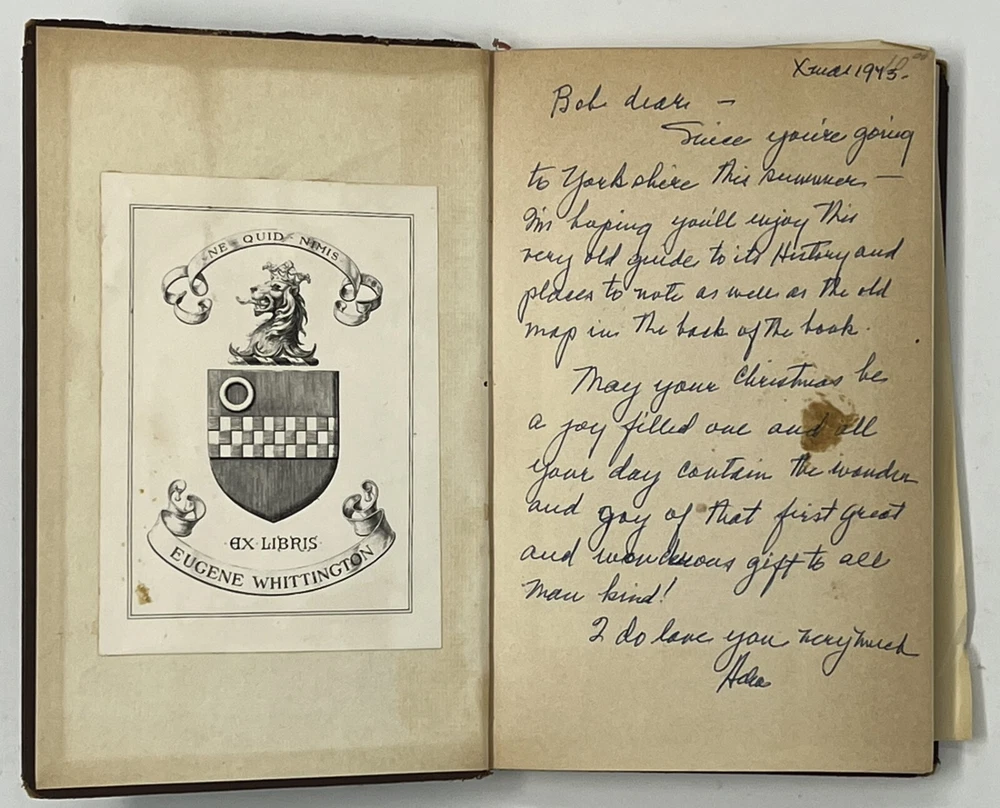 NE QUID NIMIS
EX LIBRIS
EUGENE WHITTINGTON
Xmas 1975.
Bob dear –
Since you're going
to Yorkshire this summer –
I'm hoping you'll enjoy this
very old guide to its History and
places to note as well as the old
map in the back of the book.
May your Christmas be
a joy filled one and all
your day contain the wonder
and joy of that first great
and wonderous gift to all
man kind!
I do love you very much